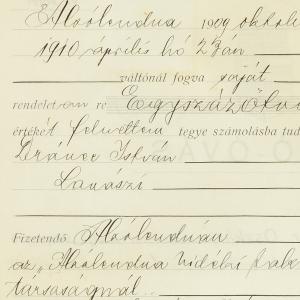 Alsólendva 1909 októb
1910 április hó 2 án
váltónál fogva saját
rendelet em re Egyszáz Ötve
értékét felvettem tegye számolásba tud
Dráncz István
Lanászi
Fizetendő Alsólendván
az „Alsólendva Vidéki Takar
társaságnál